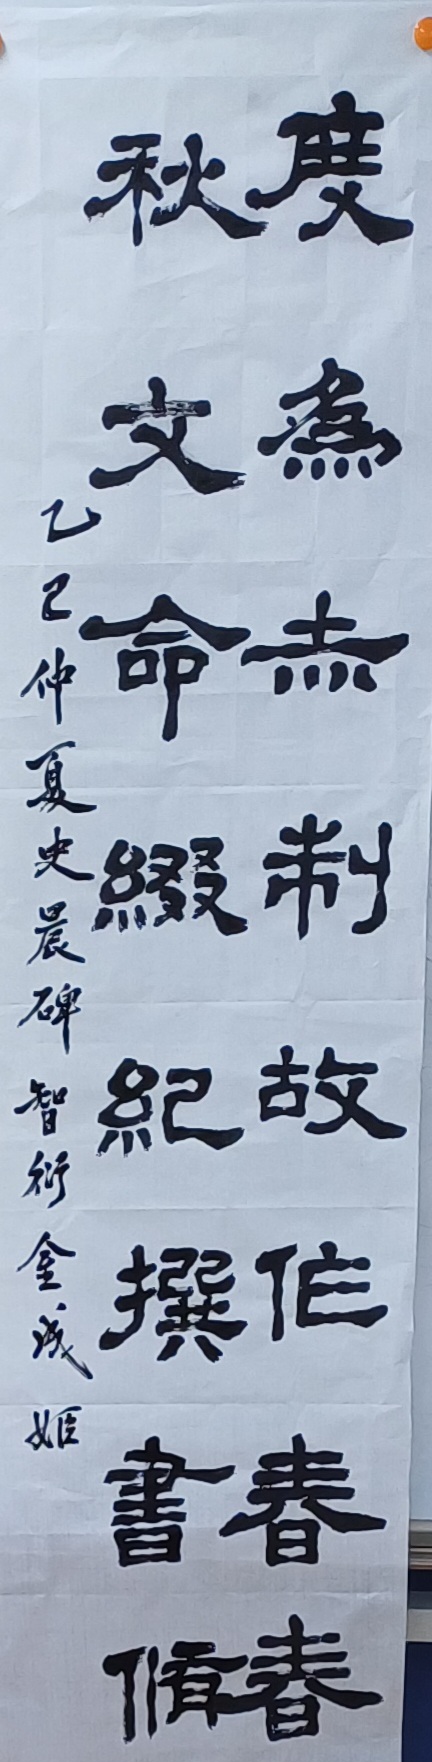 度為赤制故作春春
秋文命綴紀撰書脩
乙巳仲夏史晨碑智衍金成姬